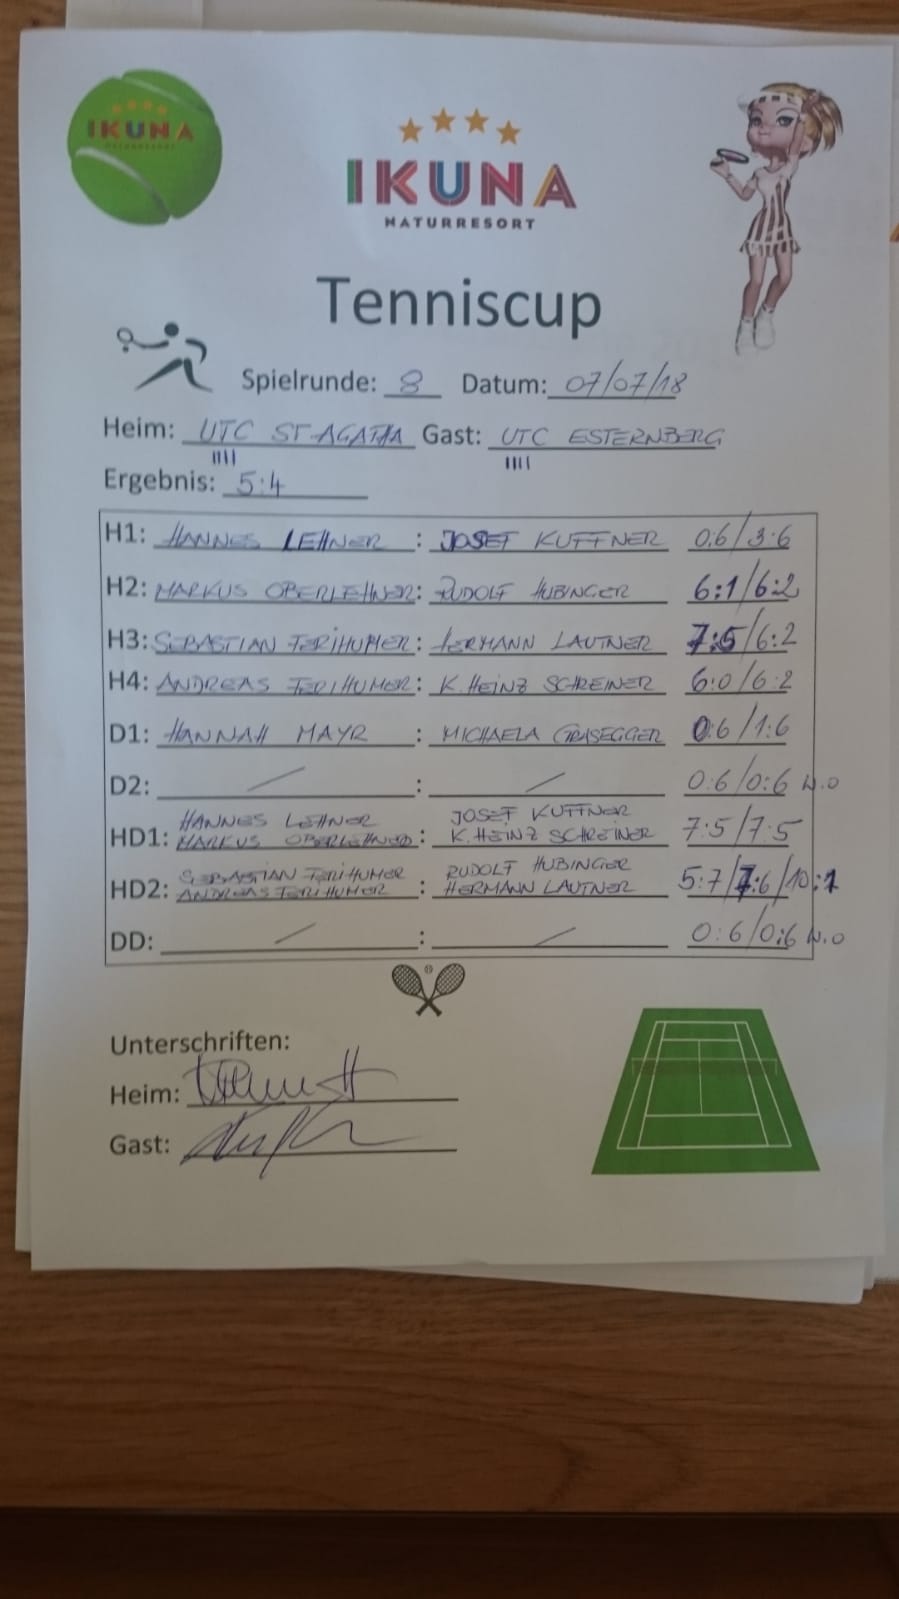 IKUNA
IKUNA
NATURRESORT
Tenniscup
Spielrunde: 8 Datum: 07/07/18
Heim: UTC ST-AGATHA Gast: UTC ESTERNBERG
Ergebnis: 5:4
H1: HANNES LEHNER : JOSEF KUFFNER 0:6/3:6
H2: MARKUS OBERLEHNER : RUDOLF HUBINGER 6:1/6:2
H3: SEBASTIAN FERIHUMER : HERMANN LAUTNER 7:5/6:2
H4: ANDREAS FERIHUMER : K. HEINZ SCHREINER 6:0/6:2
D1: HANNAH MAYR : MICHAELA GRASEGGER 0:6/1:6
D2: / : / 0:6/0:6 W.O
HANNES LEHNER JOSEF KUFFNER
HD1: MARKUS OBERLEHNER : K. HEINZ SCHREINER 7:5/7:5
SEBASTIAN FERIHUMER RUDOLF HUBINGER
HD2: ANDREAS FERIHUMER : HERMANN LAUTNER 5:7/7:6/10:1
DD: / : / 0:6/0:6 W.O
Unterschriften:
Heim:
Gast: